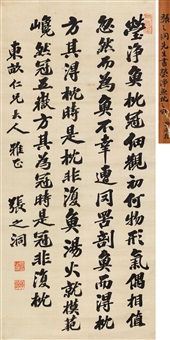 瑩淨魚枕冠細觀初何物形氣偶相值
忽然而為魚不幸遭网罟剖魚而得枕
方其得枕時是枕非復魚湯火就模範
巉然冠五嶽方其為冠時是冠非復枕
東畝仁兄大人雅正
張之洞
張之洞先生書